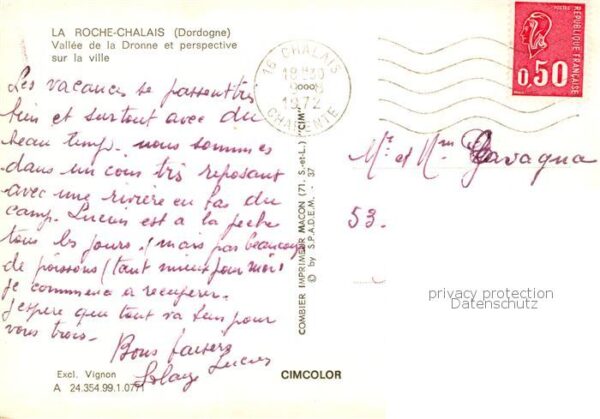 LA ROCHE-CHALAIS (Dordogne)
Vallée de la Dronne et perspective
sur la ville
Les vacances se passent très
bien et surtout avec du
beau temps. nous sommes
dans un coin très reposant
avec une rivière en bas du
camp. Lucien est a la peche
tous les jours. (mais pas beaucoup
de poissons (tant mieux pour moi)
je commence a recuperer.
J'espere que tout va bien pour
vous trois.
Bons baisers
Lucien
Excl. Vignon
A 24.354.99.1.0771
CIMCOLOR
COMBIER IMPRIMEUR MACON (71. S.-et-L.) "CIM"
© by S.P.A.D.E.M. - 37
16 CHALAIS
1972
CHARENTE
POSTES
REPUBLIQUE FRANÇAISE
0,50
Mr et Mme Gavagna
53.
privacy protection
Datenschutz